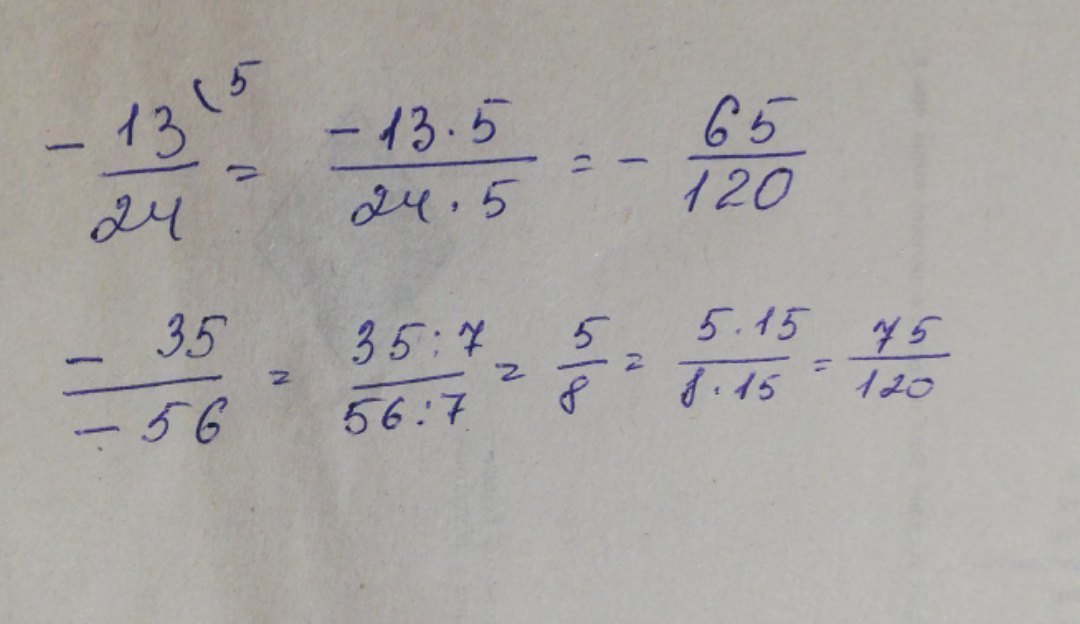 - 13/24 (5 = -13·5/24·5 = - 65/120
-35/-56 = 35:7/56:7 = 5/8 = 5·15/8·15 = 75/120